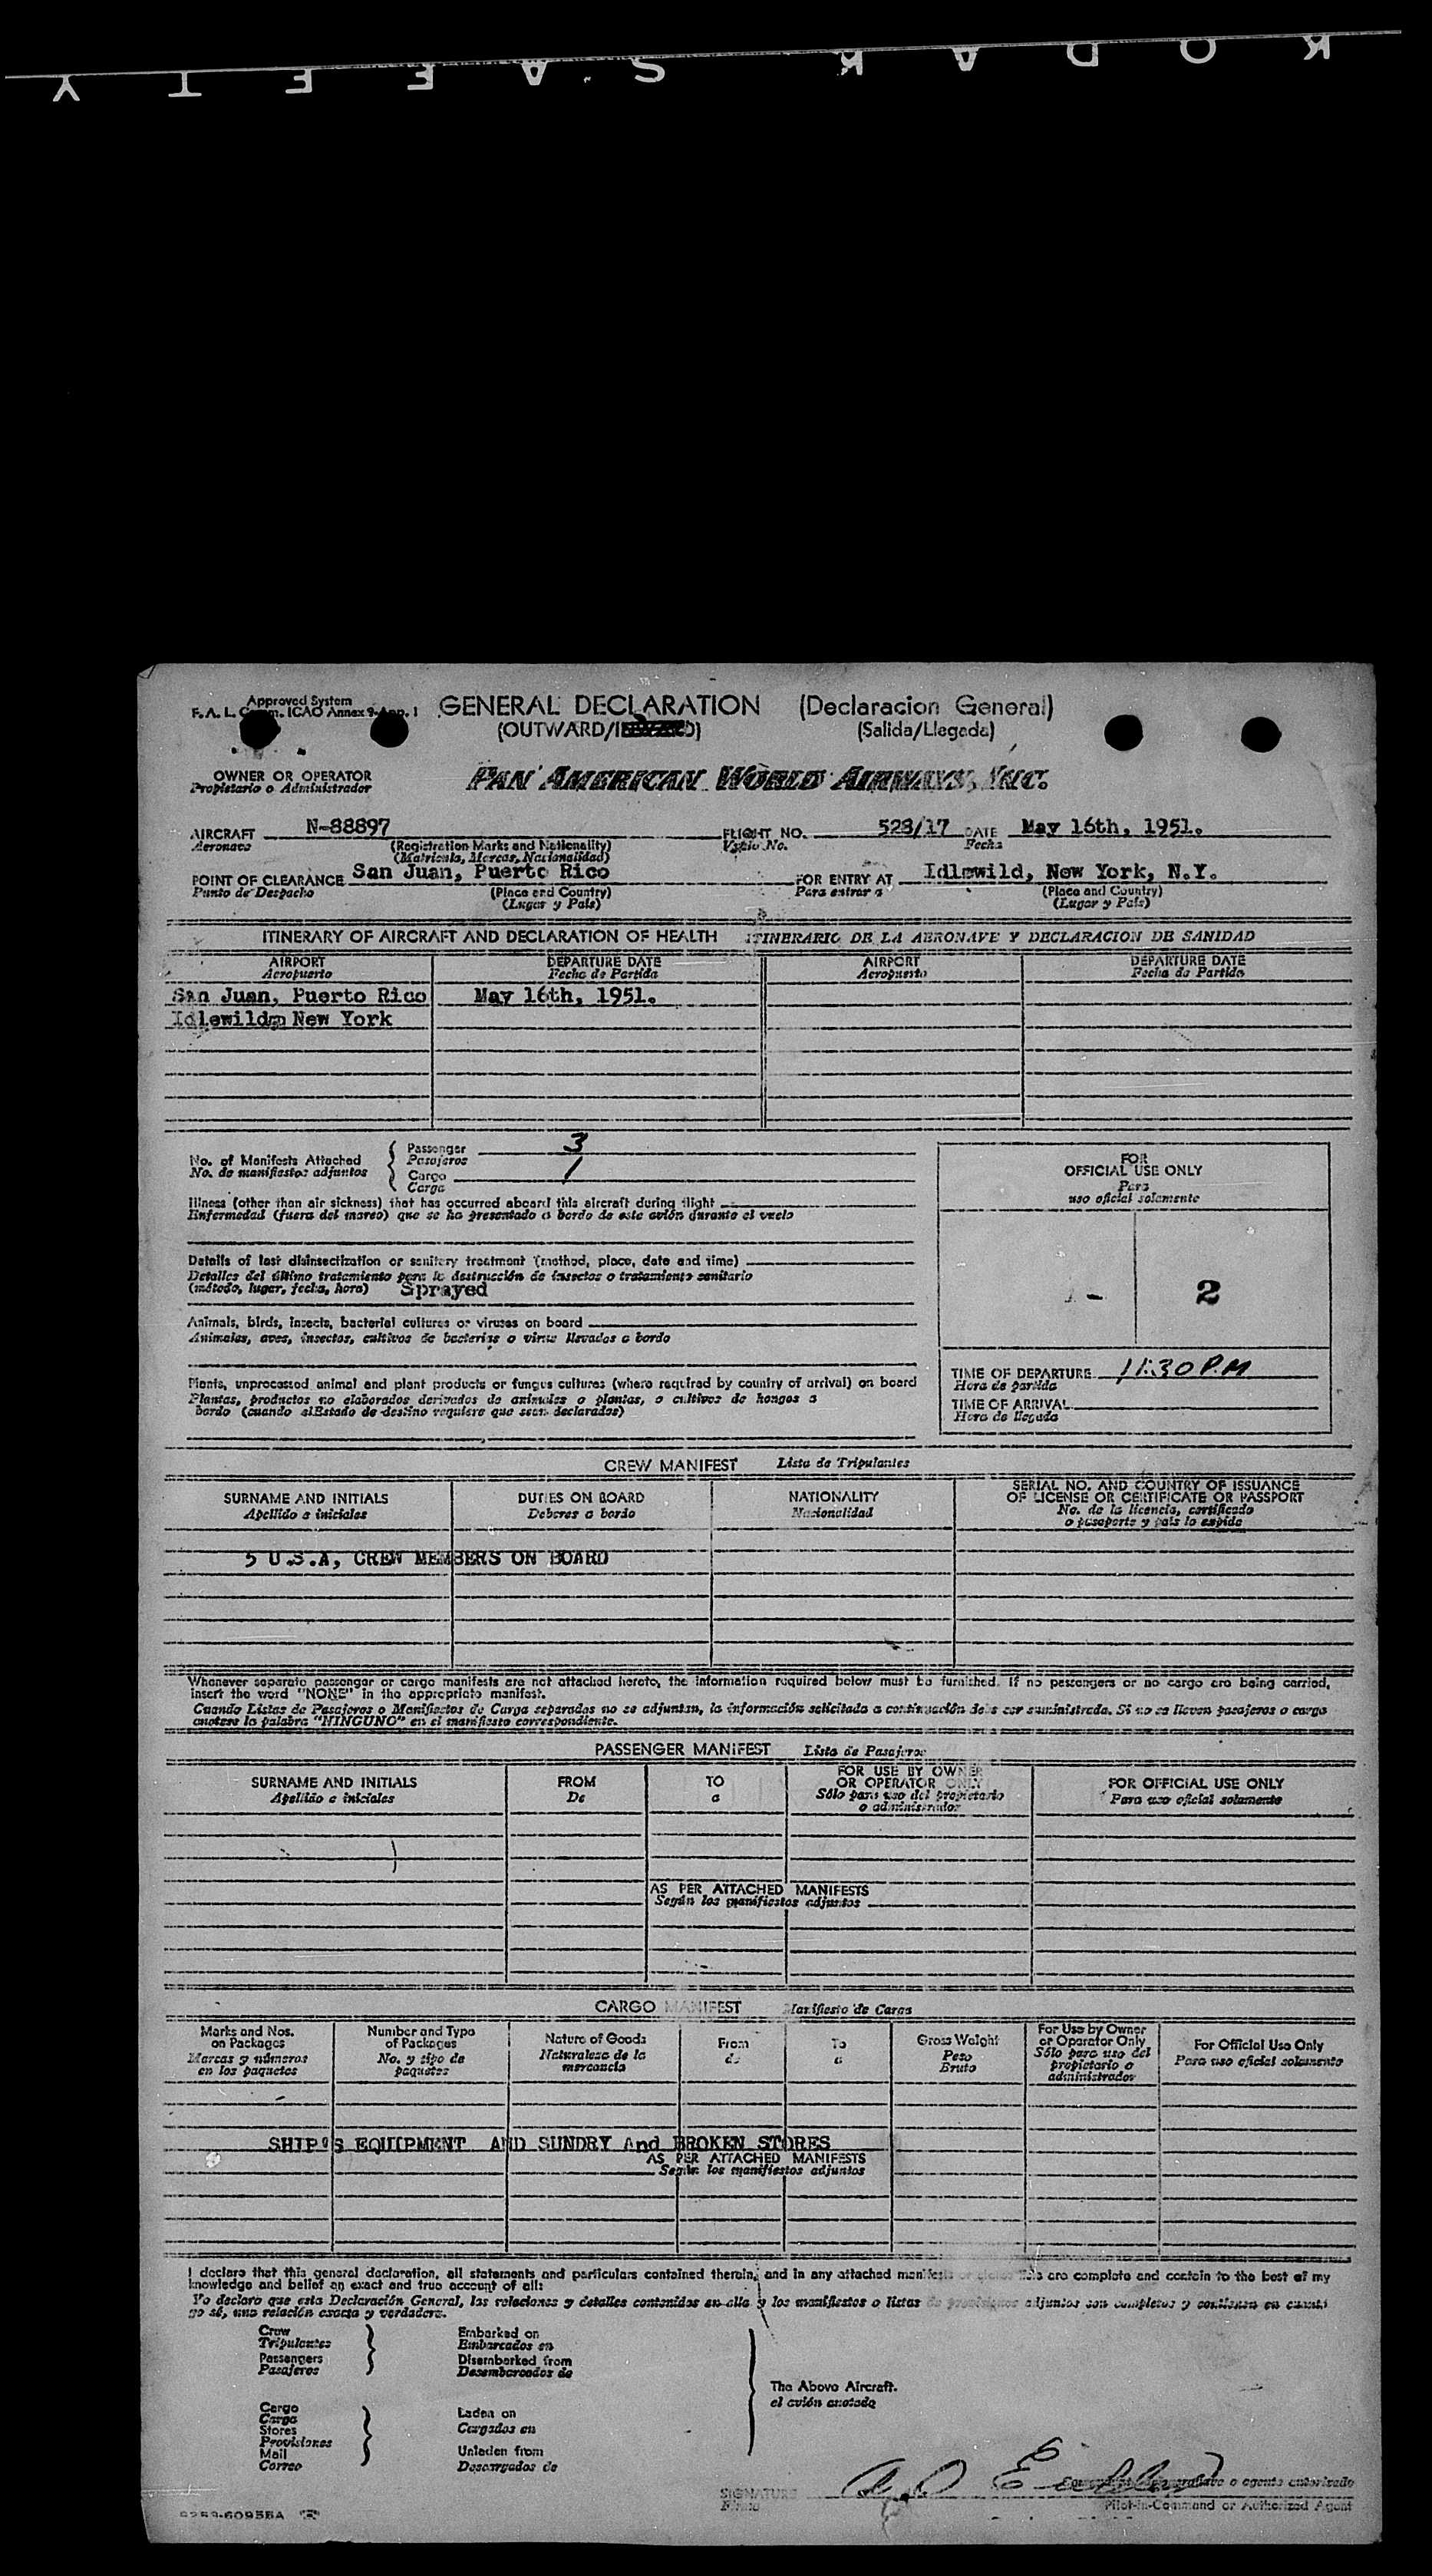 KODAK SAFETY
Approved System
F. A. L. Comm. ICAO Annex 9-App. I
GENERAL DECLARATION (Declaracion General)
(OUTWARD/ (Salida/Llegada)
OWNER OR OPERATOR
Propietario o Administrador
PAN AMERICAN WORLD AIRWAYS, INC.
AIRCRAFT N-88897 FLIGHT NO. 528/17 DATE May 16th, 1951.
Aeronave (Registration Marks and Nationality) Vuelo No. Fecha
(Matricula, Marcas, Nacionalidad)
POINT OF CLEARANCE San Juan, Puerto Rico FOR ENTRY AT Idlewild, New York, N.Y.
Punto de Despacho (Place and Country) Para entrar a (Place and Country)
(Lugar y País) (Lugar y País)
ITINERARY OF AIRCRAFT AND DECLARATION OF HEALTH ITINERARIO DE LA AERONAVE Y DECLARACION DE SANIDAD
AIRPORT DEPARTURE DATE AIRPORT DEPARTURE DATE
Aeropuerto Fecha de Partida Aeropuerto Fecha de Partida
San Juan, Puerto Rico May 16th, 1951.
Idlewild New York
No. of Manifests Attached Passenger 3
No. de manifiestos adjuntos Pasajeros
Cargo 1
Carga
FOR
OFFICIAL USE ONLY
Para
uso oficial solamente
Illness (other than air sickness) that has occurred aboard this aircraft during flight
Enfermedad (fuera del mareo) que se ha presentado a bordo de este avión durante el vuelo
Details of last disinsectization or sanitary treatment (method, place, date and time)
Detalles del último tratamiento para la destrucción de insectos o tratamiento sanitario
(método, lugar, fecha, hora) Sprayed
2
Animals, birds, insects, bacterial cultures or viruses on board
Animales, aves, insectos, cultivos de bacterias o virus llevados a bordo
TIME OF DEPARTURE 11:30 P.M
Hora de partida
TIME OF ARRIVAL
Hora de llegada
Plants, unprocessed animal and plant products or fungus cultures (where required by country of arrival) on board
Plantas, productos no elaborados derivados de animales o plantas, o cultivos de hongos a
bordo (cuando elEstado de destino requiere que sean declarados)
CREW MANIFEST Lista de Tripulantes
SURNAME AND INITIALS DUTIES ON BOARD NATIONALITY SERIAL NO. AND COUNTRY OF ISSUANCE
OF LICENSE OR CERTIFICATE OR PASSPORT
Apellido e iniciales Deberes a bordo Nacionalidad No. de la licencia, certificado
o pasaporte y país lo expide
5 U.S.A, CREW MEMBERS ON BOARD
Whenever separate passenger or cargo manifests are not attached hereto, the information required below must be furnished. If no passengers or no cargo are being carried,
insert the word "NONE" in the appropriate manifest.
Cuando Listas de Pasajeros o Manifiestos de Carga separadas no se adjuntan, la información solicitada a continuación debe ser suministrada. Si no se llevan pasajeros o carga
anotese la palabra "NINGUNO" en el manifiesto correspondiente.
PASSENGER MANIFEST Lista de Pasajeros
SURNAME AND INITIALS FROM TO FOR USE BY OWNER
OR OPERATOR ONLY FOR OFFICIAL USE ONLY
Apellido e iniciales De a Sólo para uso del propietario
o administrador Para uso oficial solamente
AS PER ATTACHED MANIFESTS
Según los manifiestos adjuntos
CARGO MANIFEST Manifiesto de Carga
Marks and Nos.
on Packages
Marcas y números
en los paquetes
Number and Type
of Packages
No. y tipo de
paquetes
Nature of Goods
Naturaleza de la
mercancia
From
de
To
a
Gross Weight
Peso
Bruto
For Use by Owner
or Operator Only
Sólo para uso del
propietario o
administrador
For Official Use Only
Para uso oficial solamente
SHIP'S EQUIPMENT AND SUNDRY And BROKEN STORES
AS PER ATTACHED MANIFESTS
Según los manifiestos adjuntos
I declare that this general declaration, all statements and particulars contained therein, and in any attached manifests are complete and contain to the best of my
knowledge and belief an exact and true account of all:
Yo declaro que esta Declaración General, las relaciones y detalles contenidos en ella y los manifiestos o listas de provisiones adjuntos son completos y contienen en cuanto
yo sé, una relación exacta y verdadera.
Crew
Tripulantes
Passengers
Pasajeros
Embarked on
Embarcados en
Disembarked from
Desembarcados de
The Above Aircraft.
el avión anotado
Cargo
Carga
Stores
Provisiones
Mail
Correo
Laden on
Cargados en
Unladen from
Descargados de
SIGNATURE o agente autorizado
Firma Pilot-in-Command or Authorized Agent